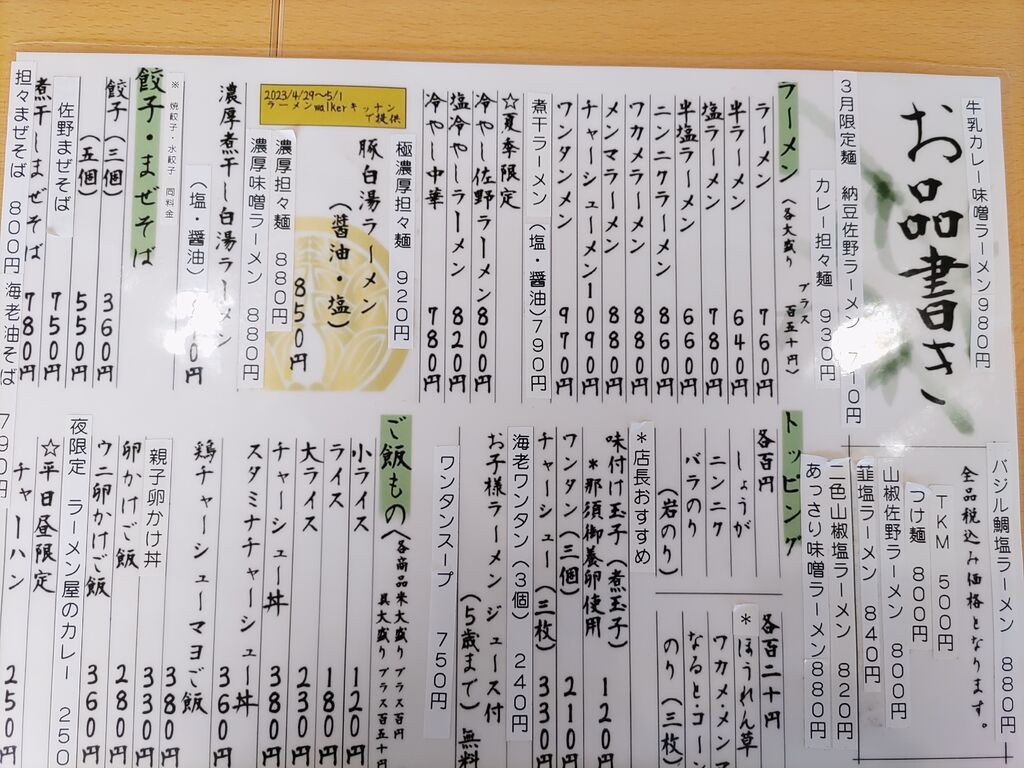 お品書き
牛乳カレー味噌ラーメン980円
3月限定麺 納豆佐野ラーメン
カレー担々麺 930円
ラーメン(各大盛り プラス 百五十円)
ラーメン 760円
半ラーメン 640円
塩ラーメン 780円
半塩ラーメン 660円
ニンニクラーメン 860円
ワカメラーメン 880円
メンマラーメン 880円
チャーシューメン1090円
ワンタンメン 970円
煮干ラーメン(塩・醤油)790円
☆夏季限定
冷やし佐野ラーメン800円
塩冷やしラーメン 820円
冷やし中華 780円
2023/4/29〜5/1
ラーメンwalkerキッチン
で提供
極濃厚担々麺 920円
豚白湯ラーメン
(醤油・塩) 850円
濃厚担々麺 880円
濃厚味噌ラーメン 880円
濃厚煮干し白湯ラーメン
(塩・醤油)
※ 焼餃子・水餃子 同料金
餃子・まぜそば
餃子(三個) 360円
(五個) 550円
佐野まぜそば 750円
煮干しまぜそば 780円
担々まぜそば 800円
海老油そば 790円
バジル鯛塩ラーメン 880円
全品税込み価格となります。
TKM 500円
つけ麺 800円
山椒佐野ラーメン 800円
韮塩ラーメン 840円
二色山椒塩ラーメン 820円
あっさり味噌ラーメン880円
トッピング
各百円
しょうが
ニンニク
バラのり
(岩のり)
各百二十円
*ほうれん草
ワカメ・メンマ
なると・コーン
のり(三枚)
*店長おすすめ
味付け玉子(煮玉子) 120円
*那須御養卵使用
ワンタン(三個) 210円
チャーシュー(三枚) 330円
海老ワンタン(3個) 240円
お子様ラーメン ジュース付
(5歳まで) 無料
ワンタンスープ 750円
ご飯もの(各商品米大盛り プラス百円
具大盛り プラス百五十円
小ライス 120円
ライス 180円
大ライス 230円
チャーシュー丼 380円
スタミナチャーシュー丼
360円
鶏チャーシューマヨご飯
380円
親子卵かけ丼 330円
卵かけご飯 280円
ウニ卵かけご飯 360円
夜限定 ラーメン屋のカレー 250
☆平日昼限定
チャーハン 250円